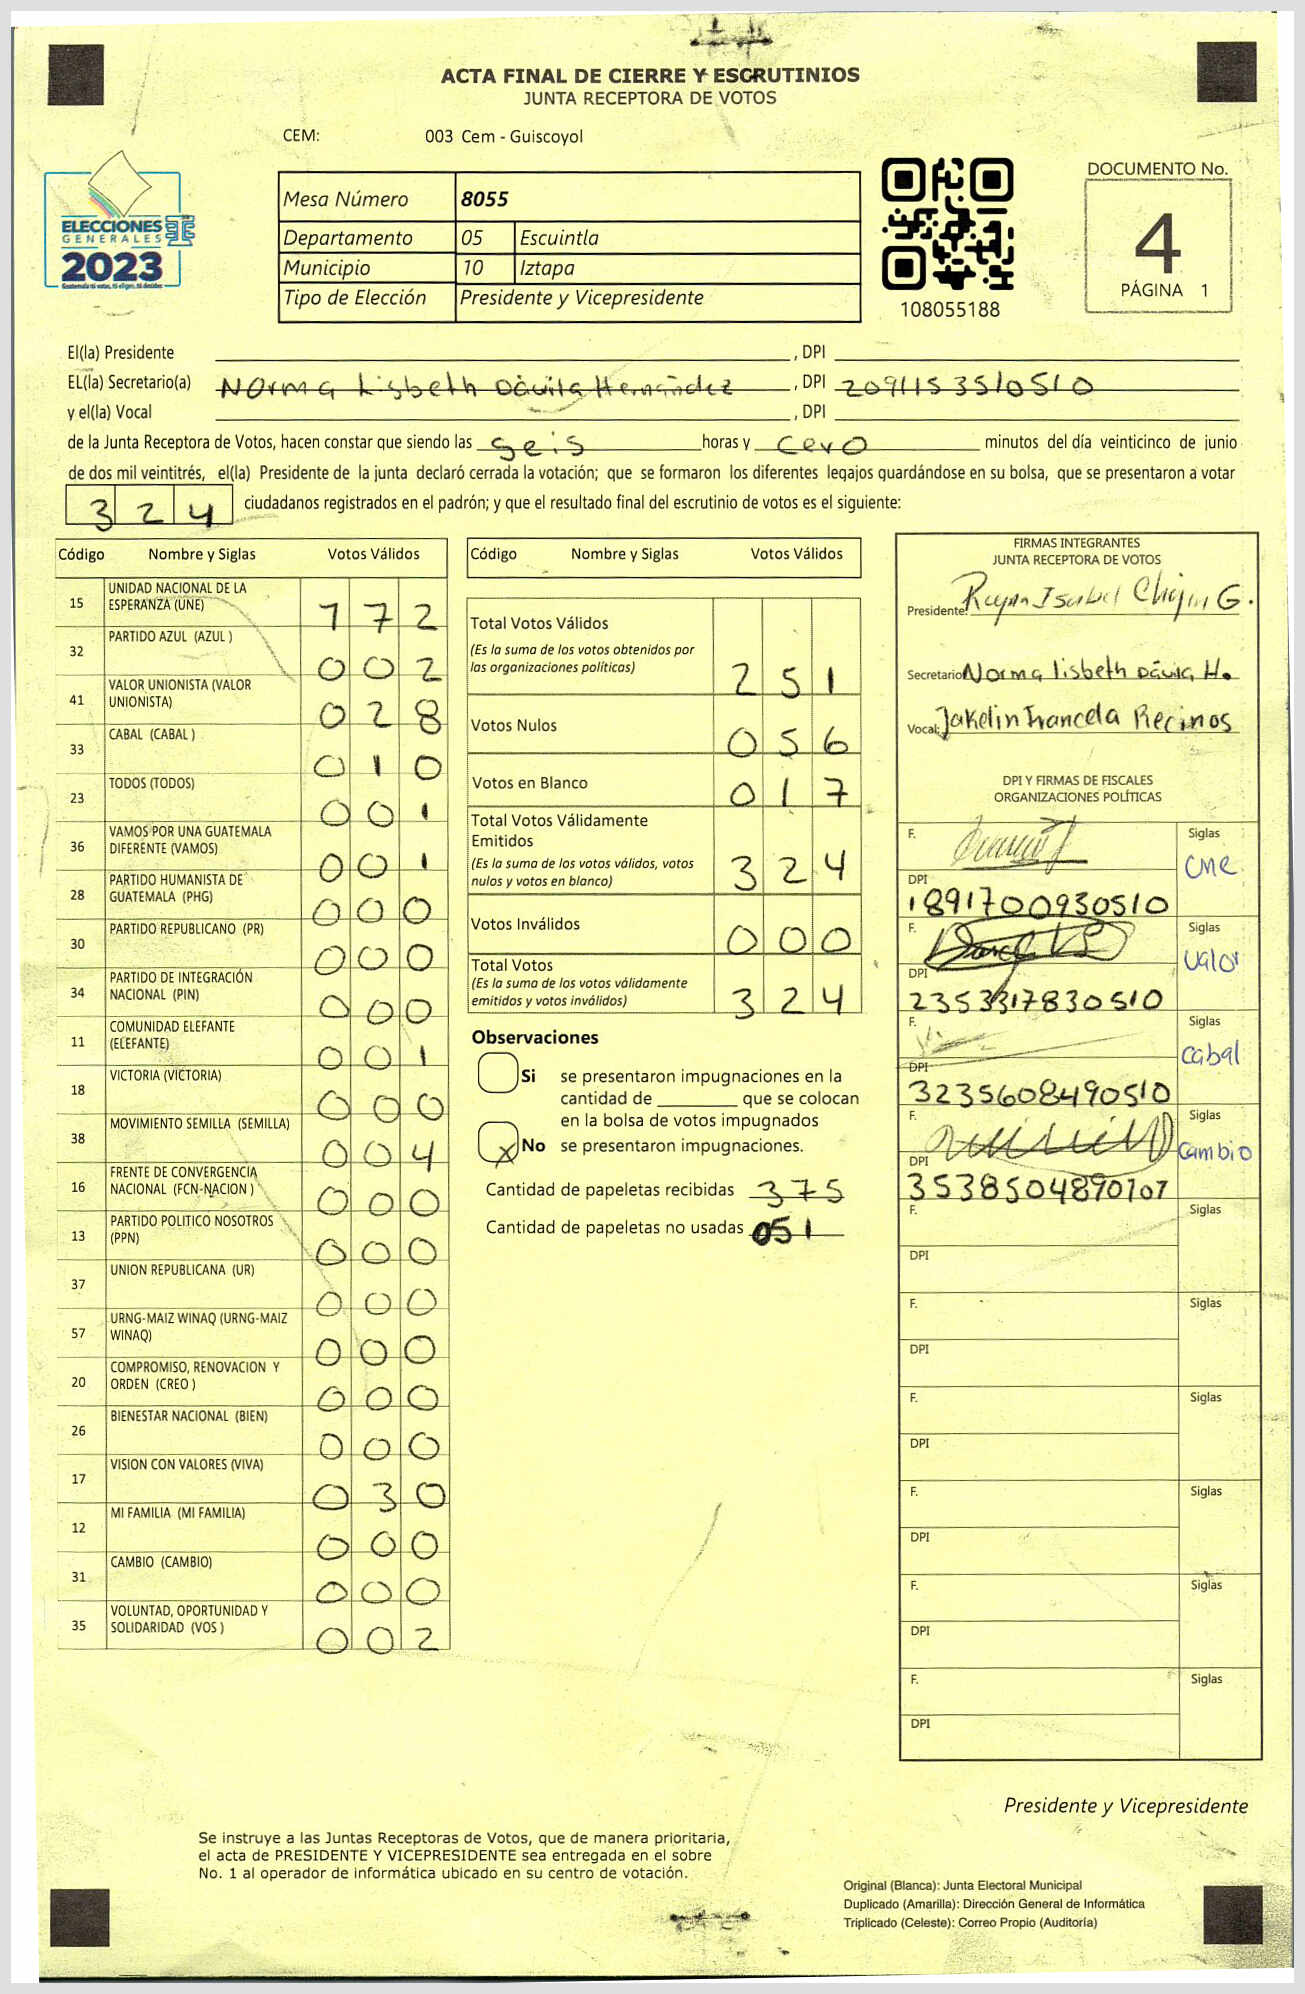 ACTA FINAL DE CIERRE Y ESCRUTINIOS
JUNTA RECEPTORA DE VOTOS
CEM: 003 Cem - Guiscoyol
ELECCIONES
GENERALES
2023
Mesa Número 8055
Departamento 05 Escuintla
Municipio 10 Iztapa
Tipo de Elección Presidente y Vicepresidente
108055188
DOCUMENTO No.
4
PÁGINA 1
El(la) Presidente , DPI
EL(la) Secretario(a) Norma Lisbeth Dávila Hernández , DPI 2091153510510
y el(la) Vocal , DPI
de la Junta Receptora de Votos, hacen constar que siendo las seis horas y cero minutos del día veinticinco de junio
de dos mil veintitrés, el(la) Presidente de la junta declaró cerrada la votación; que se formaron los diferentes legajos guardándose en su bolsa, que se presentaron a votar
324 ciudadanos registrados en el padrón; y que el resultado final del escrutinio de votos es el siguiente:
Código Nombre y Siglas Votos Válidos
15 UNIDAD NACIONAL DE LA
ESPERANZA (UNE) 172
32 PARTIDO AZUL (AZUL ) 002
41 VALOR UNIONISTA (VALOR
UNIONISTA) 028
33 CABAL (CABAL ) 010
23 TODOS (TODOS) 001
36 VAMOS POR UNA GUATEMALA
DIFERENTE (VAMOS) 001
28 PARTIDO HUMANISTA DE
GUATEMALA (PHG) 000
30 PARTIDO REPUBLICANO (PR) 000
34 PARTIDO DE INTEGRACIÓN
NACIONAL (PIN) 000
11 COMUNIDAD ELEFANTE
(ELEFANTE) 001
18 VICTORIA (VICTORIA) 000
38 MOVIMIENTO SEMILLA (SEMILLA) 004
16 FRENTE DE CONVERGENCIA
NACIONAL (FCN-NACION ) 000
13 PARTIDO POLITICO NOSOTROS
(PPN) 000
37 UNION REPUBLICANA (UR) 000
57 URNG-MAIZ WINAQ (URNG-MAIZ
WINAQ) 000
20 COMPROMISO, RENOVACION Y
ORDEN (CREO ) 000
26 BIENESTAR NACIONAL (BIEN) 000
17 VISION CON VALORES (VIVA) 030
12 MI FAMILIA (MI FAMILIA) 000
31 CAMBIO (CAMBIO) 000
35 VOLUNTAD, OPORTUNIDAD Y
SOLIDARIDAD (VOS ) 002
Código Nombre y Siglas Votos Válidos
Total Votos Válidos
(Es la suma de los votos obtenidos por
las organizaciones políticas) 251
Votos Nulos 056
Votos en Blanco 017
Total Votos Válidamente
Emitidos
(Es la suma de los votos válidos, votos
nulos y votos en blanco) 324
Votos Inválidos 000
Total Votos
(Es la suma de los votos válidamente
emitidos y votos inválidos) 324
Observaciones
Si se presentaron impugnaciones en la
cantidad de ________ que se colocan
en la bolsa de votos impugnados
X No se presentaron impugnaciones.
Cantidad de papeletas recibidas 375
Cantidad de papeletas no usadas 051
FIRMAS INTEGRANTES
JUNTA RECEPTORA DE VOTOS
Presidente: Isabel G.
Secretario Norma lisbeth Dávila H.
Vocal: Jakelin Recinos
DPI Y FIRMAS DE FISCALES
ORGANIZACIONES POLÍTICAS
F. Siglas
DPI
1891700930510
F. Siglas
Valor
DPI
2353317830510
F. Siglas
Cabal
DPI
3235608490510
F. Siglas
Cambio
DPI
3538504890707
F. Siglas
DPI
F. Siglas
DPI
F. Siglas
DPI
F. Siglas
DPI
F. Siglas
DPI
F. Siglas
DPI
Presidente y Vicepresidente
Se instruye a las Juntas Receptoras de Votos, que de manera prioritaria,
el acta de PRESIDENTE Y VICEPRESIDENTE sea entregada en el sobre
No. 1 al operador de informática ubicado en su centro de votación.
Original (Blanca): Junta Electoral Municipal
Duplicado (Amarilla): Dirección General de Informática
Triplicado (Celeste): Correo Propio (Auditoría)